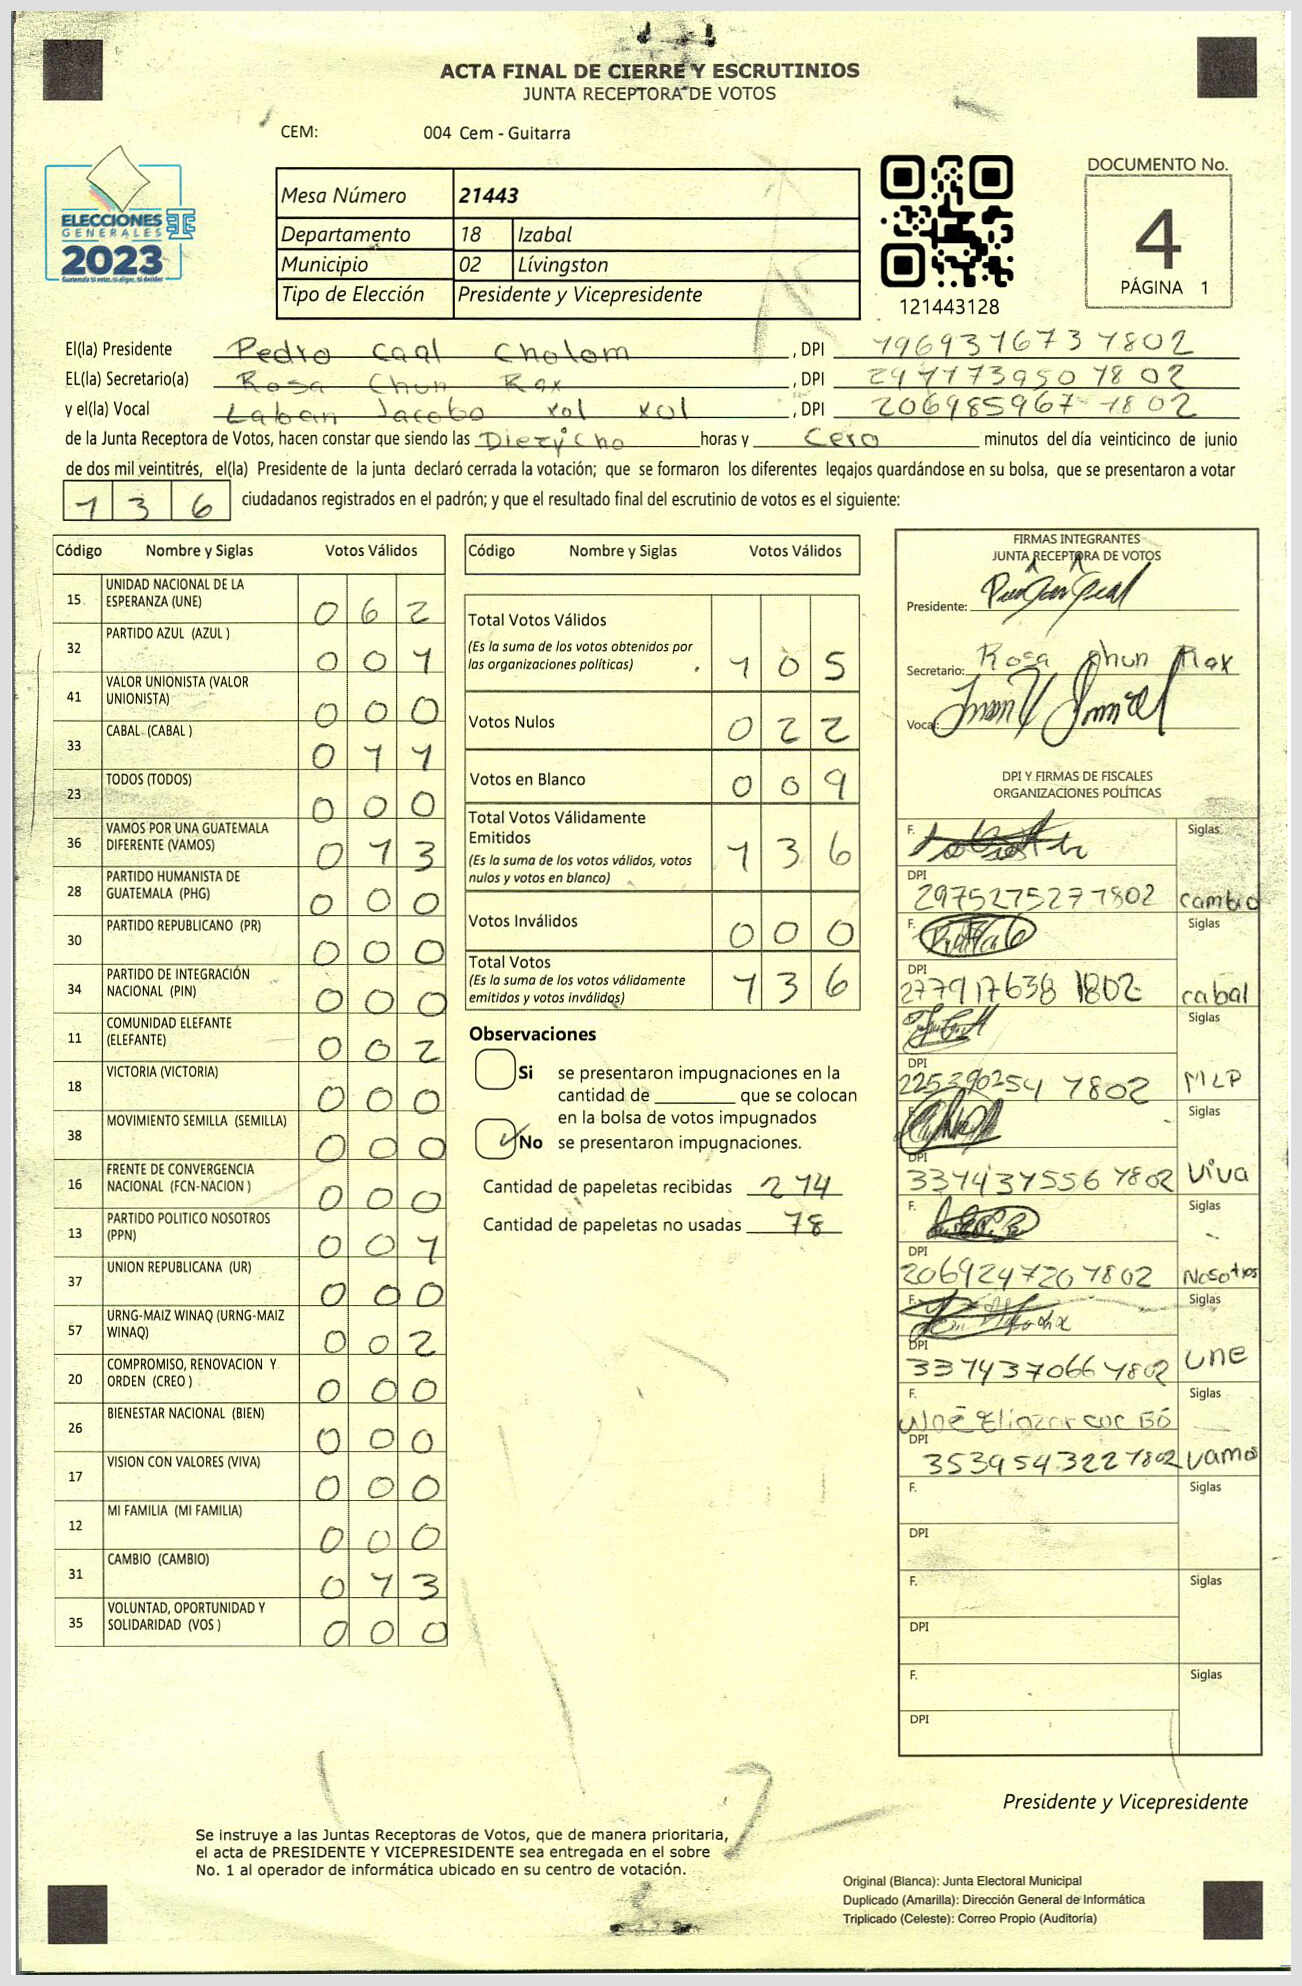 ACTA FINAL DE CIERRE Y ESCRUTINIOS
JUNTA RECEPTORA DE VOTOS
CEM: 004 Cem - Guitarra
ELECCIONES
GENERALES
2023
Mesa Número 21443
Departamento 18 Izabal
Municipio 02 Lívingston
Tipo de Elección Presidente y Vicepresidente
121443128
DOCUMENTO No.
4
PÁGINA 1
El(la) Presidente Pedro Caal Cholom, DPI 1969316731802
EL(la) Secretario(a) Rosa Chun Rax, DPI 2417739501802
y el(la) Vocal Laban Jacobo xol xol, DPI 2069859671802
de la Junta Receptora de Votos, hacen constar que siendo las Dieziocho horas y Cero minutos del día veinticinco de junio
de dos mil veintitrés, el(la) Presidente de la junta declaró cerrada la votación; que se formaron los diferentes legajos guardándose en su bolsa, que se presentaron a votar
136 ciudadanos registrados en el padrón; y que el resultado final del escrutinio de votos es el siguiente:
Código Nombre y Siglas Votos Válidos
15 UNIDAD NACIONAL DE LA
ESPERANZA (UNE) 062
32 PARTIDO AZUL (AZUL ) 001
41 VALOR UNIONISTA (VALOR
UNIONISTA) 000
33 CABAL (CABAL ) 011
23 TODOS (TODOS) 000
36 VAMOS POR UNA GUATEMALA
DIFERENTE (VAMOS) 013
28 PARTIDO HUMANISTA DE
GUATEMALA (PHG) 000
30 PARTIDO REPUBLICANO (PR) 000
34 PARTIDO DE INTEGRACIÓN
NACIONAL (PIN) 000
11 COMUNIDAD ELEFANTE
(ELEFANTE) 002
18 VICTORIA (VICTORIA) 000
38 MOVIMIENTO SEMILLA (SEMILLA) 000
16 FRENTE DE CONVERGENCIA
NACIONAL (FCN-NACION ) 000
13 PARTIDO POLITICO NOSOTROS
(PPN) 001
37 UNION REPUBLICANA (UR) 000
57 URNG-MAIZ WINAQ (URNG-MAIZ
WINAQ) 002
20 COMPROMISO, RENOVACION Y
ORDEN (CREO ) 000
26 BIENESTAR NACIONAL (BIEN) 000
17 VISION CON VALORES (VIVA) 000
12 MI FAMILIA (MI FAMILIA) 000
31 CAMBIO (CAMBIO) 013
35 VOLUNTAD, OPORTUNIDAD Y
SOLIDARIDAD (VOS ) 000
Código Nombre y Siglas Votos Válidos
Total Votos Válidos
(Es la suma de los votos obtenidos por
las organizaciones políticas) 105
Votos Nulos 022
Votos en Blanco 009
Total Votos Válidamente
Emitidos
(Es la suma de los votos válidos, votos
nulos y votos en blanco) 136
Votos Inválidos 000
Total Votos
(Es la suma de los votos válidamente
emitidos y votos inválidos) 136
Observaciones
Si se presentaron impugnaciones en la
cantidad de ________ que se colocan
en la bolsa de votos impugnados
No se presentaron impugnaciones.
Cantidad de papeletas recibidas 214
Cantidad de papeletas no usadas 78
FIRMAS INTEGRANTES
JUNTA RECEPTORA DE VOTOS
Presidente:
Secretario: Rosa chun Rax
Vocal:
DPI Y FIRMAS DE FISCALES
ORGANIZACIONES POLÍTICAS
F. Siglas
DPI 2975275271802 cambio
F. Siglas
DPI 277917638 1802 cabal
F. Siglas
DPI 225390254 1802 MLP
F. Siglas
DPI 3314315561802 Viva
F. Siglas
DPI 2069247201802 Nosotros
F. Siglas
DPI 3314370661802 UNE
F. Noé Eliazar cuc Bó Siglas
DPI 3539543221802 Vamos
F. Siglas
DPI
F. Siglas
DPI
F. Siglas
DPI
Presidente y Vicepresidente
Se instruye a las Juntas Receptoras de Votos, que de manera prioritaria,
el acta de PRESIDENTE Y VICEPRESIDENTE sea entregada en el sobre
No. 1 al operador de informática ubicado en su centro de votación.
Original (Blanca): Junta Electoral Municipal
Duplicado (Amarilla): Dirección General de Informática
Triplicado (Celeste): Correo Propio (Auditoría)